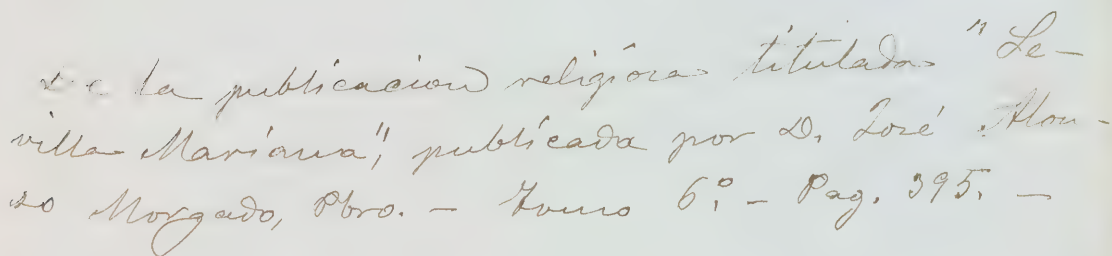 de la publicacion religiosa titulada "Se-
villa Mariana", publicada por D. José Alon-
so Morgado, Pbro. - Tomo 6º. - Pag. 395. -